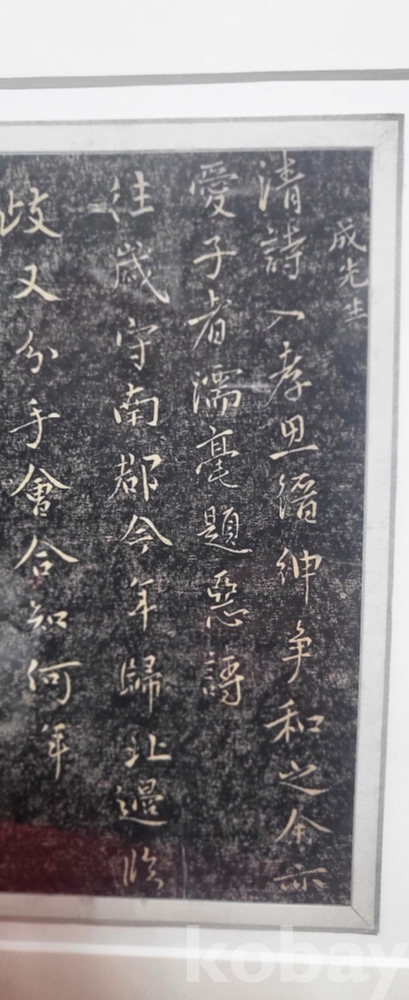 成先生
清詩入孝思縉紳爭和之余亦
愛子者濡毫題惡詩
往歲守南都今年歸北邊臨
歧又分手會合知何年
kobay